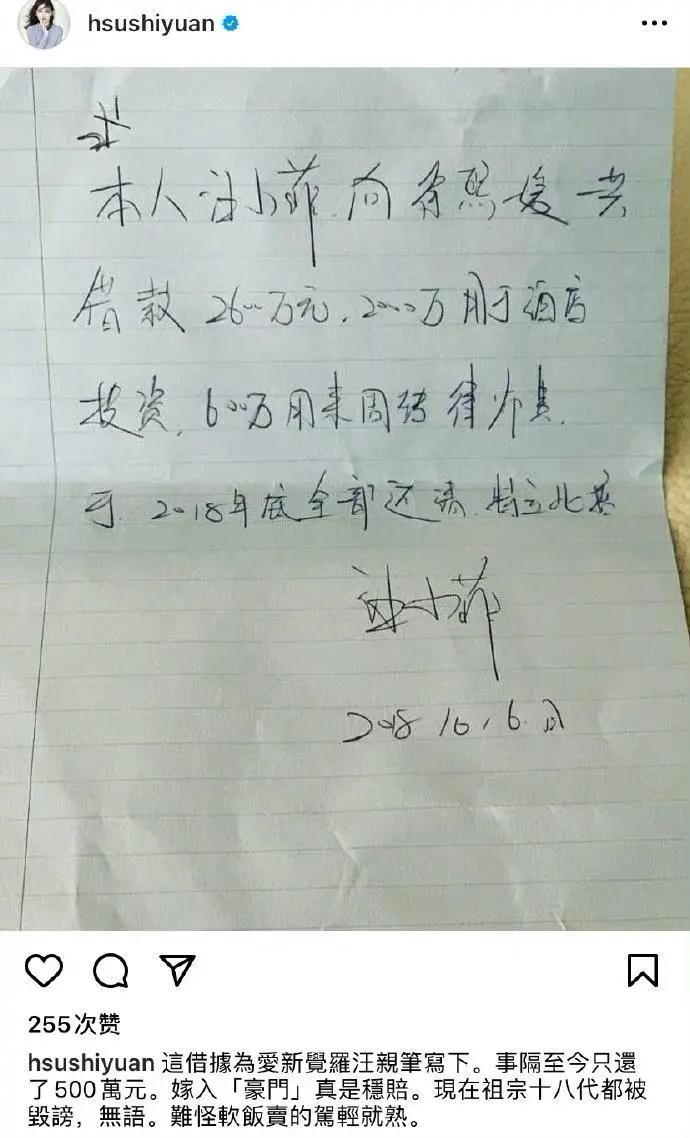 hsushiyuan
本人汪小菲向徐熙媛共
借款2600万元,2000万用于酒店
投资,600万用来周转律师费.
于2018年底全部还清.特立此据
汪小菲
2018.10.6.日
255次赞
hsushiyuan 這借據為愛新覺羅汪親筆寫下。事隔至今只還
了500萬元。嫁入「豪門」真是穩賠。現在祖宗十八代都被
毀謗，無語。難怪軟飯賣的駕輕就熟。